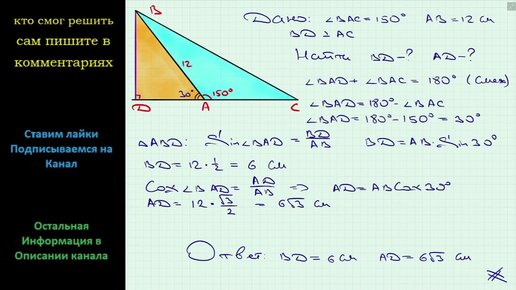 кто смог решить
сам пишите в
комментариях
Ставим лайки
Подписываемся на
Канал
Остальная
Информация в
Описании канала
B
12
30°
150°
D
A
C
Дано: ∠BAC = 150° AB = 12 см
BD ⊥ AC
Найти BD - ? AD - ?
∠BAD + ∠BAC = 180° (смеж)
∠BAD = 180° - ∠BAC
∠BAD = 180° - 150° = 30°
△ABD: Sin∠BAD = BD/AB BD = AB · Sin30°
BD = 12 · 1/2 = 6 см
Cos∠BAD = AD/AB => AD = AB Cos30°
AD = 12 · √3/2 = 6√3 см
Ответ: BD = 6 см AD = 6√3 см